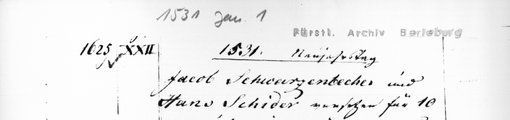 1531 Jan. 1
Fürstl. Archiv Berleburg
1625 XXII 1531. Neujahrstag
Jacob Schwarzenbecher und
Hans Schider versetzen für 10